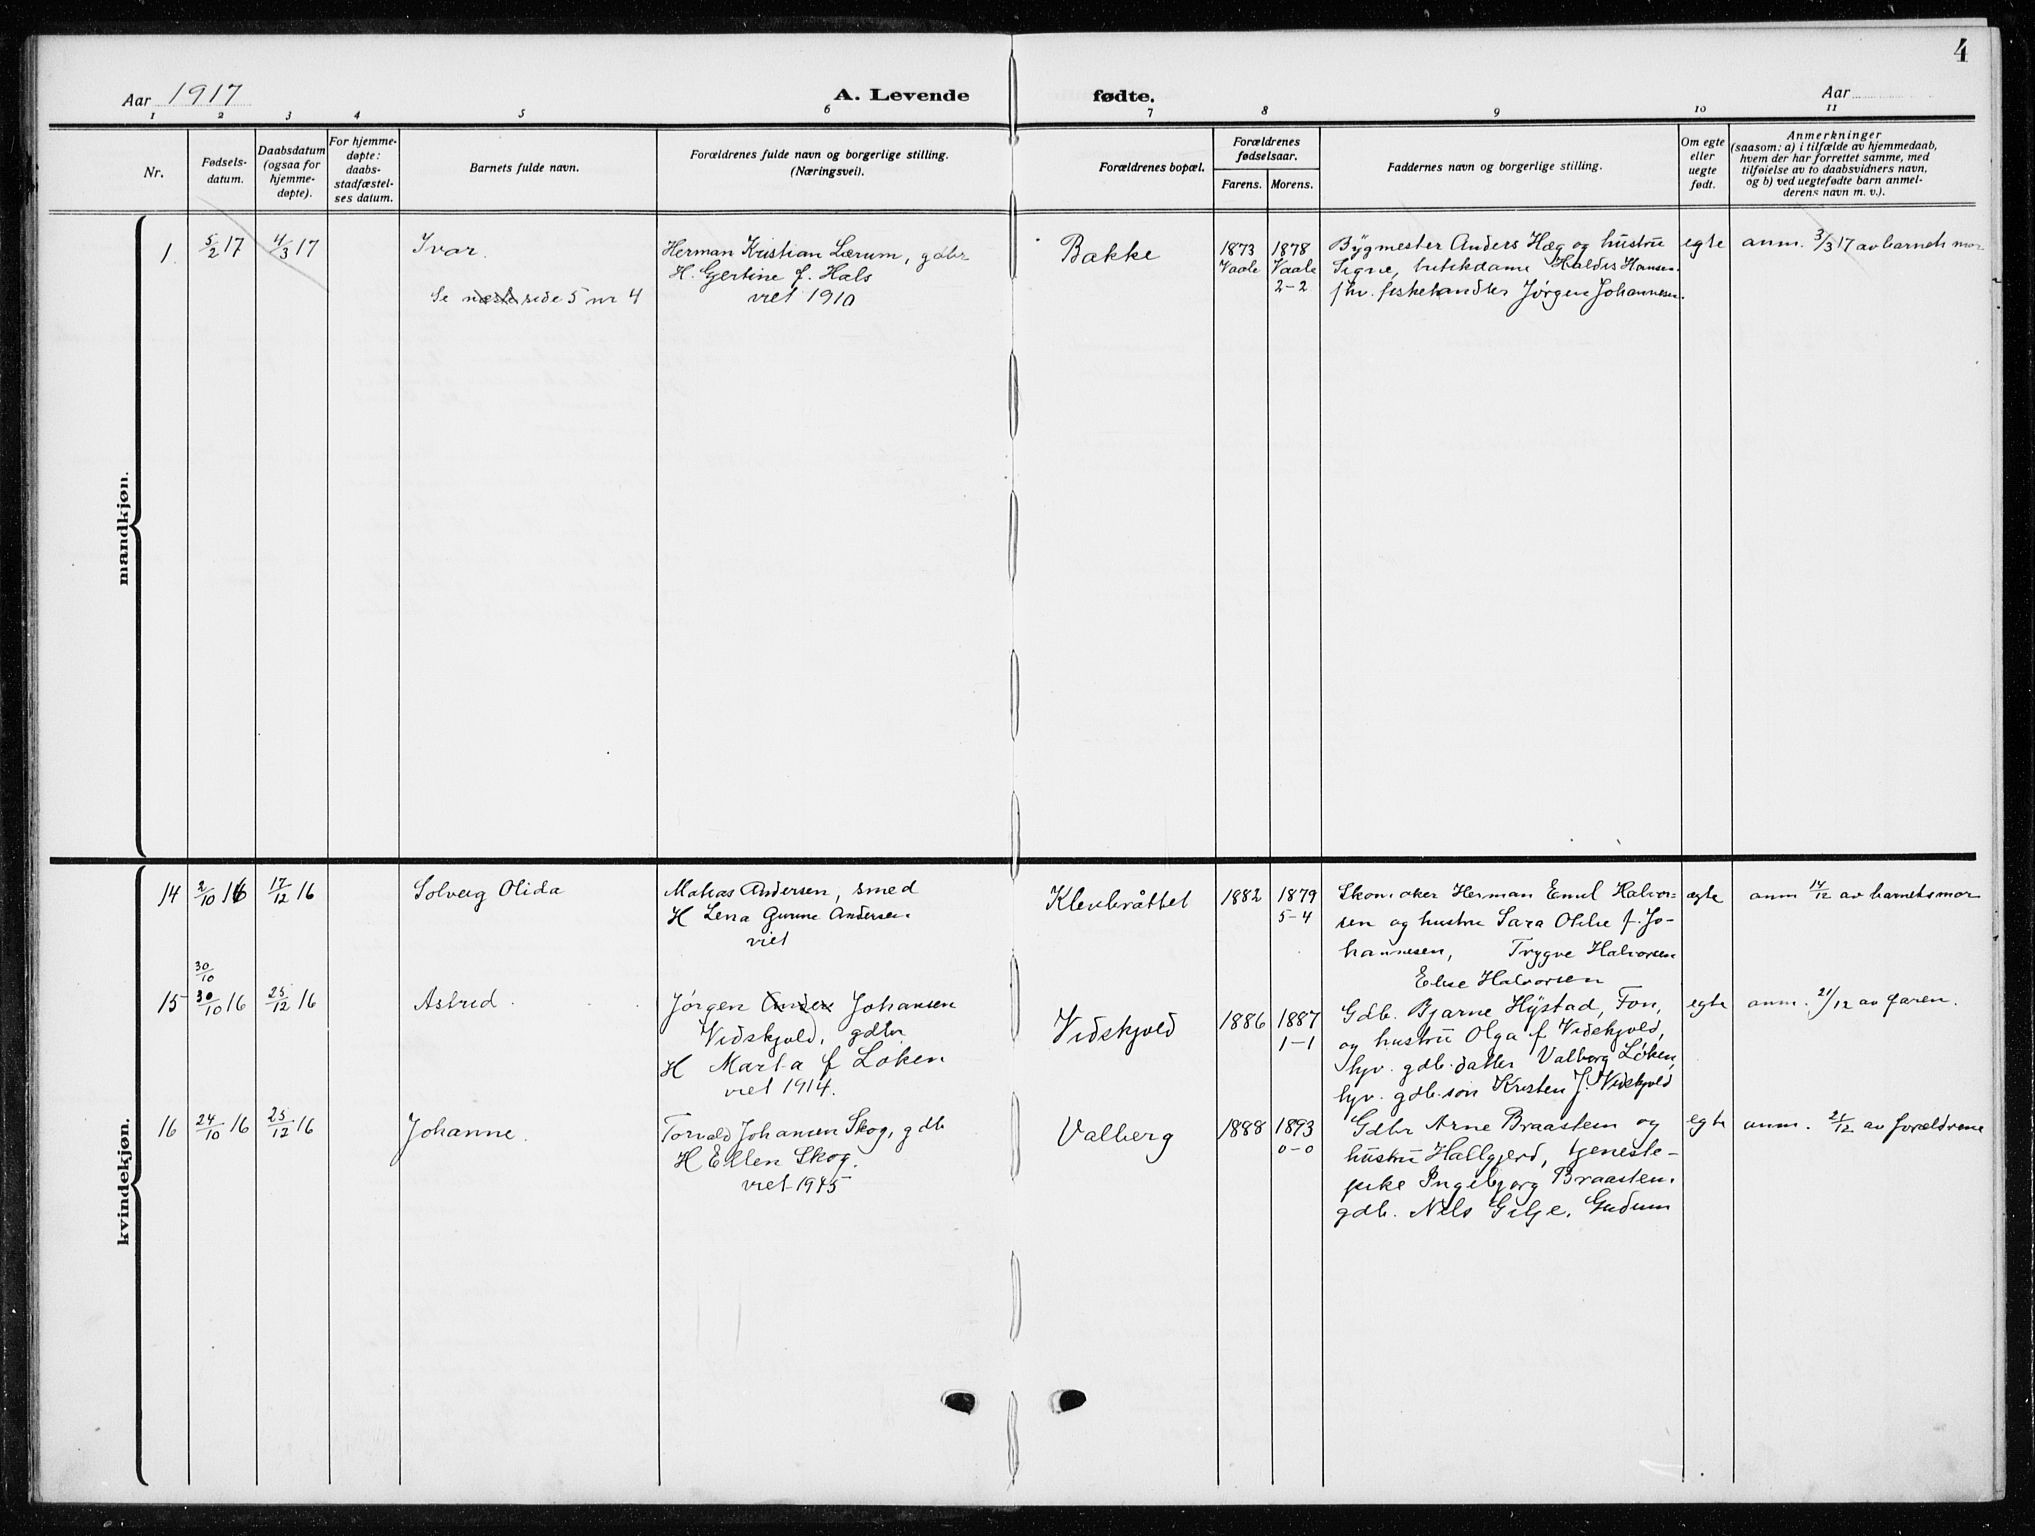 4
Aar 1917
A. Levende fødte.
Aar
1 2 3 4 5 6 7 8 9 10 11
Nr.
Fødsels-
datum.
Daabsdatum
(ogsaa for
hjemme-
døpte).
For hjemme-
døpte:
daabs-
stadfæstel-
ses datum.
Barnets fulde navn.
Forældrenes fulde navn og borgerlige stilling.
(Næringsvei).
Forældrenes bopæl.
Forældrenes
fødselsaar.
Farens. Morens.
Faddernes navn og borgerlige stilling.
Om egte
eller
uegte
født.
Anmerkninger
(saasom: a) i tilfælde av hjemmedaab,
hvem der har forrettet samme, med
tilføielse av to daabsvidners navn,
og b) ved uegtefødte barn anmel-
derens navn m. v.).
mandkjøn.
1. 5/2 17 4/3 17
Ivar.
Se næste side 5 nr 4
Herman Kristian Lærum, gdbr
H. Gjertine f. Hals
viet 1910
Bakke
1873
Vaale
1878
Vaale
2-2
Bygmester Anders Hæg og hustru
Signe, butikdame Haldis Hansen.
fhv. fiskehandler Jørgen Johannesen.
egte
anm. 3/3 17 av barnets mor
kvindekjøn.
14 2/10 16 17/12 16
Solveig Olida
Matias Andersen, smed
H Lena Gurine Andersen
viet
Klevbråttet
1882
1879
5-4
Skomaker Herman Emil Halvor-
sen og hustru Sara Otilie f. Jo-
hannesen, Trygve Halvorsen
Else Halvorsen
egte
anm 14/12 av barnets mor
30/10
15 30/10 16 25/12 16
Astrid.
Jørgen Johansen
Vidskjold, gdbr
H Marta f Løken
viet 1914.
Vidskjold
1886
1887
1-1
Gdb. Bjarne Hystad, Fon,
og hustru Olga f Vidskjold,
hjv. gdb. datter Valborg Løken,
hjv. gdb. søn Kristen J. Vidskjold
egte
anm. 21/12 av faren.
16 24/10 16 25/12 16
Johanne.
Torvald Johansen Skog, gdb
H Ellen Skog.
viet 1915
Valberg
1888
1893
0-0
Gdbr Arne Braasten og
hustru Hallgjerd, tjeneste-
pike Ingebjørg Braasten.
gdb. Nils Gilje, Gudum
egte
anm. 21/12 av forældrene